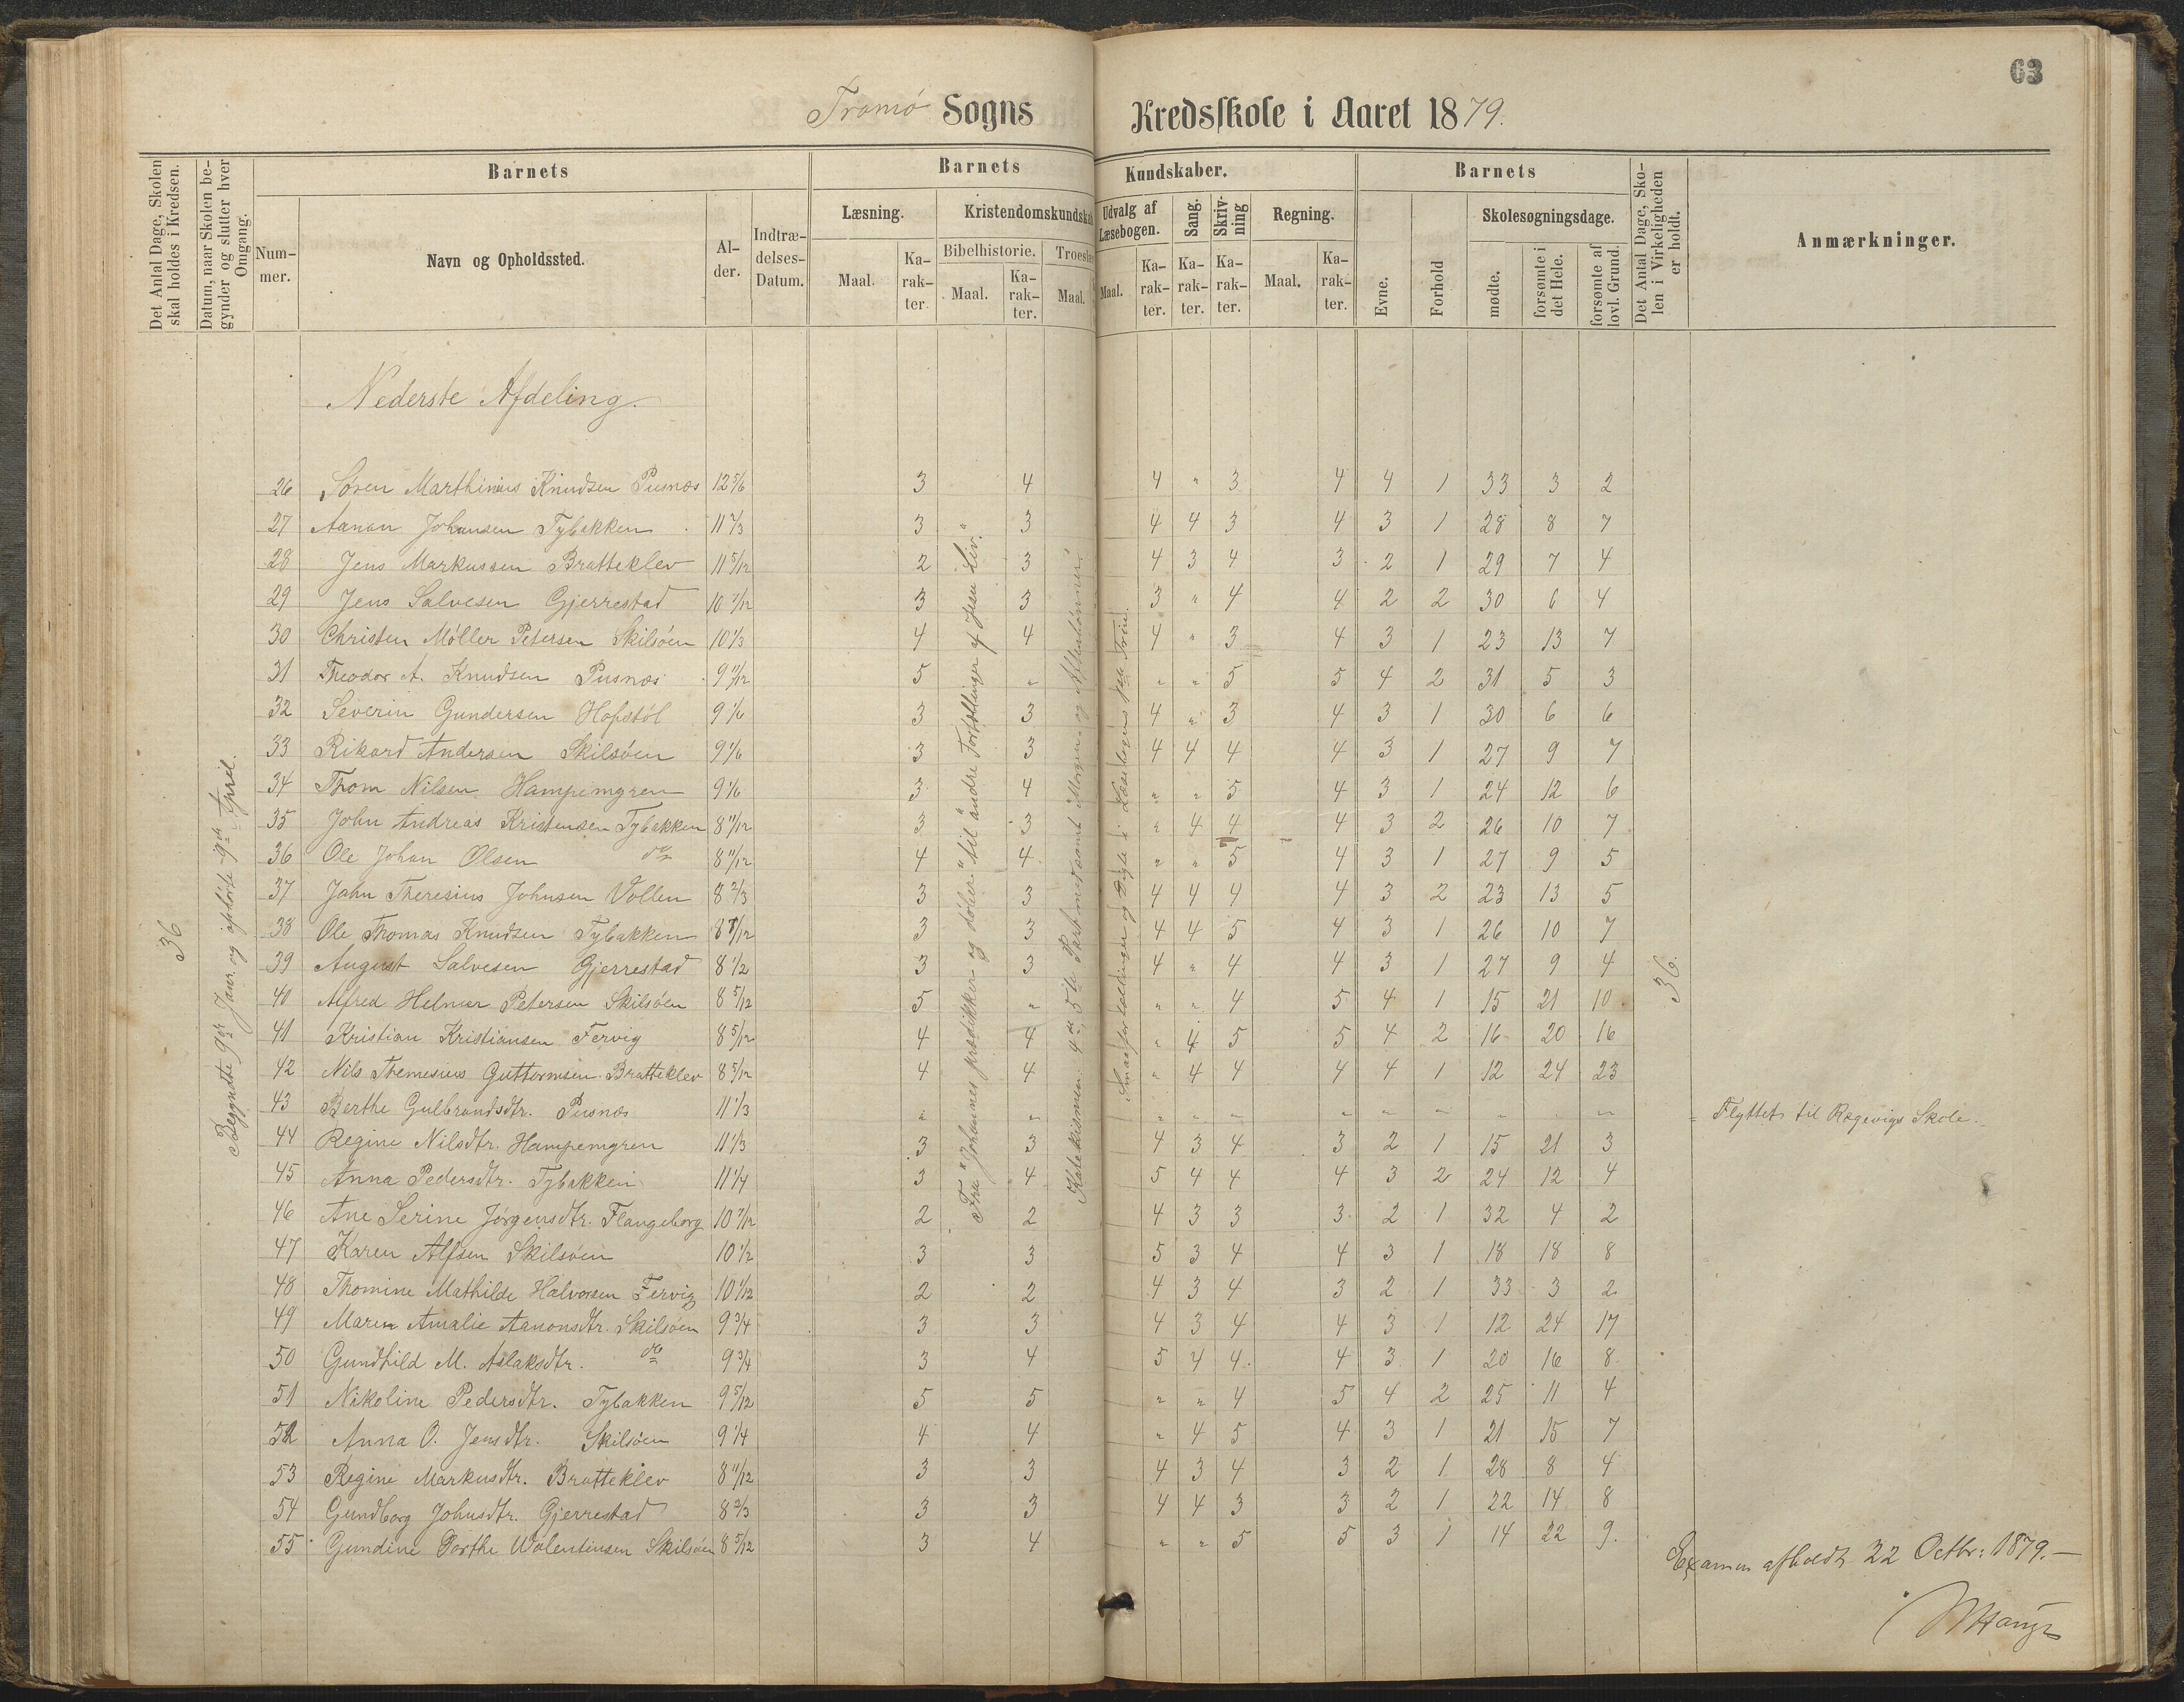 63
Tromø Sogns Kredsskole i Aaret 1879.
Det Antal Dage, Skolen skal holdes i Kredsen.
Datum, naar Skolen begynder og slutter hver Omgang.
Barnets
Nummer.
Navn og Opholdssted.
Alder.
Indtrædelses-Datum.
Barnets Kundskaber.
Læsning.
Maal.
Karakter.
Kristendomskundskab
Bibelhistorie.
Maal.
Karakter.
Troeslæ
Maal.
Udvalg af Læsebogen.
Maal.
Karakter.
Sang.
Karakter.
Skrivning
Karakter.
Regning.
Maal.
Karakter.
Barnets
Evne.
Forhold
Skolesøgningsdage.
mødte.
forsømte i det Hele.
forsømte af lovl. Grund.
Det Antal Dage, Skolen i Virkeligheden er holdt.
Anmærkninger.
Nederste Afdeling.
36
Begyndte 9de Janr. og ophørte 9de April.
Fra "Johannes prædikken og døber" til "andre Fortællinger af Jesu Liv."
Katekismen 4de, 5te Part med samt Morgen- og Aftenbønnen.
Smaafortællinger og Digte i Læsebogens 1ste Trin.
36.
26 Søren Marthinius Knudsen Pusnes 12 5/6 3 4 4 " 3 4 4 1 33 3 2
27 Aanon Johansen Tybakken 11 2/3 3 3 4 4 3 4 3 1 28 8 7
28 Jens Markussen Bratteklev 11 5/12 2 3 4 3 4 3 2 1 29 7 4
29 Jens Salvesen Gjerrestad 10 7/12 3 3 3 " 4 4 2 2 30 6 4
30 Christen Møller Petersen Skilsøen 10 1/3 4 4 4 " 3 4 3 1 23 13 7
31 Theodor A. Knudsen Pusnes 9 11/12 5 " " " 5 5 4 2 31 5 3
32 Severin Gundersen Hofstøl 9 1/6 3 3 4 " 3 4 3 1 30 6 6
33 Rikard Andersen Skilsøen 9 1/6 3 3 4 4 4 4 3 1 27 9 7
34 Thom Nilsen Hampemyren 9 1/6 3 4 " " 5 4 3 1 24 12 6
35 John Andreas Kristensen Tybakken 8 11/12 3 3 " 4 4 4 3 2 26 10 7
36 Ole Johan Olsen do 8 11/12 4 4 " " 5 4 3 1 27 9 5
37 John Theresius Johnsen Vollen 8 2/3 3 3 4 4 4 4 3 2 23 13 5
38 Ole Thomas Knudsen Tybakken 8 7/12 3 3 4 4 5 4 3 1 26 10 7
39 August Salvesen Gjerrestad 8 1/2 3 3 4 " 4 4 3 1 27 9 4
40 Alfred Helmer Petersen Skilsøen 8 5/12 5 " " " 4 5 4 1 15 21 10
41 Kristian Kristiansen Fervig 8 5/12 4 4 " 4 5 5 4 2 16 20 16
42 Nils Themesius Guttormsen Bratteklev 8 5/12 4 4 " 4 4 4 4 1 12 24 23
43 Berthe Gulbrandsdtr. Pusnes 11 1/3 " " " " " " " " " " " " Flyttet til Rægevigs Skole.
44 Regine Nilsdtr. Hampemyren 11 1/3 3 3 4 3 4 3 2 1 15 21 3
45 Anna Pedersdtr. Tybakken 11 1/4 3 4 5 4 4 4 3 2 24 12 4
46 Ane Serine Jørgensdtr. Flangeborg 10 7/12 2 2 4 3 3 3 2 1 32 4 2
47 Karen Alfsen Skilsøen 10 1/2 3 3 5 3 4 4 3 1 18 18 8
48 Thomine Mathilde Halvorsen Fervig 10 1/12 2 2 4 3 4 3 2 1 33 3 2
49 Maren Amalie Aanonsdtr. Skilsøen 9 3/4 3 3 4 3 4 4 3 1 12 24 17
50 Gundhild M. Aslaksdtr. do 9 3/4 3 4 5 4 4 4 3 1 20 16 8
51 Nikoline Pedersdtr. Tybakken 9 5/12 5 5 " " 4 5 4 2 25 11 4
52 Anna O. Jensdtr. Skilsøen 9 1/4 4 4 " 4 5 4 3 1 21 15 7
53 Regine Markusdtr. Bratteklev 8 11/12 3 3 4 3 4 3 2 1 28 8 4
54 Gundborg Johnsdtr. Gjerrestad 8 2/3 3 3 4 4 3 3 2 1 22 14 8
55 Gundine Dorthe Walentinsen Skilsøen 8 5/12 3 4 " " 5 5 3 1 14 22 9.
Examen afholdt 22 Octbr: 1879.